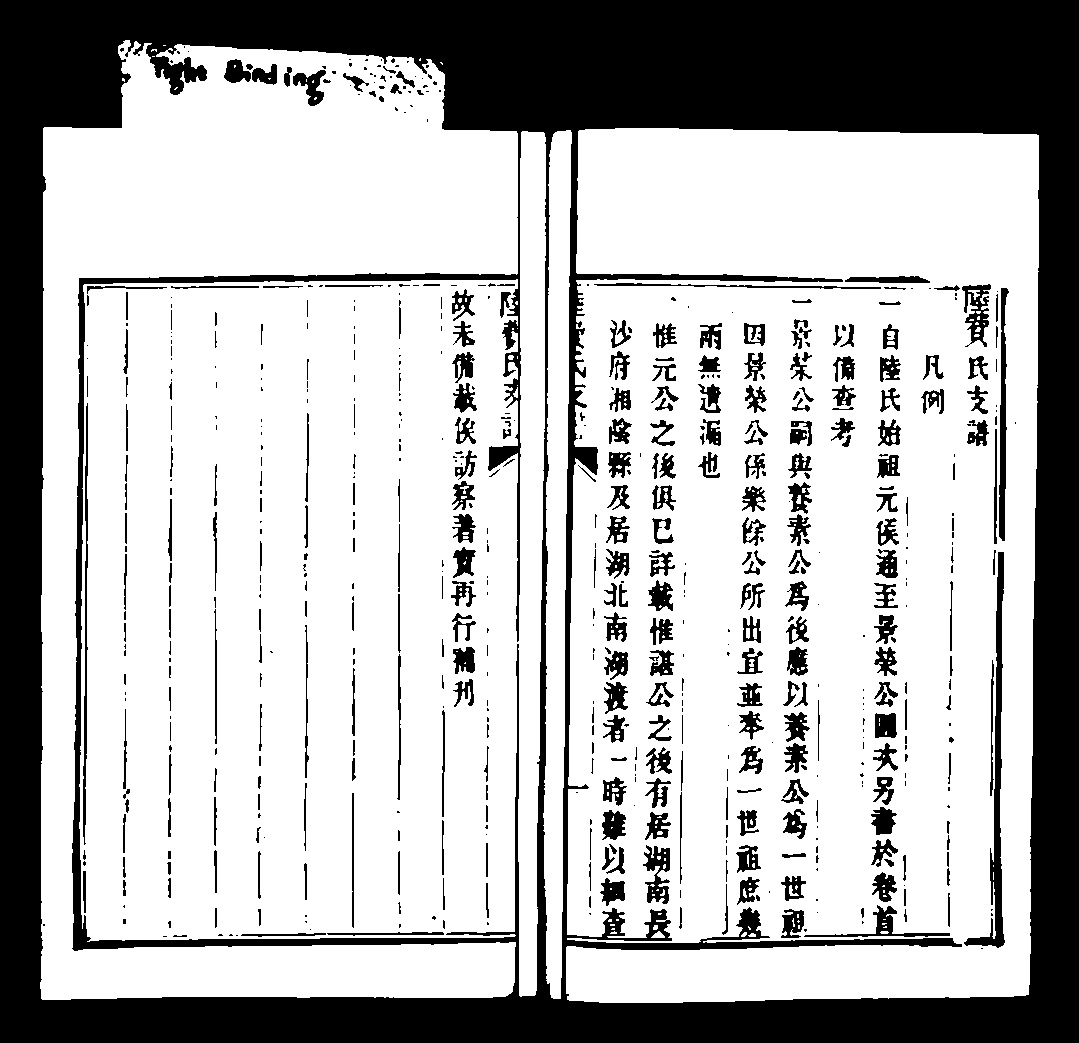 Tight Binding
陸費氏支譜
凡例
一自陸氏始祖元侯通至景榮公圖次另書於卷首
以備查考
一景榮公嗣與養素公爲後應以養素公爲一世祖
因景榮公係樂餘公所出宜並奉爲一世祖庶幾
兩無遺漏也
惟元公之後俱已詳載惟諶公之後有居湖南長
沙府湘陰縣及居湖北南湖渡者一時難以細查
陸費氏支譜
一
陸費氏支譜
故未備載俟訪察著實再行補刊